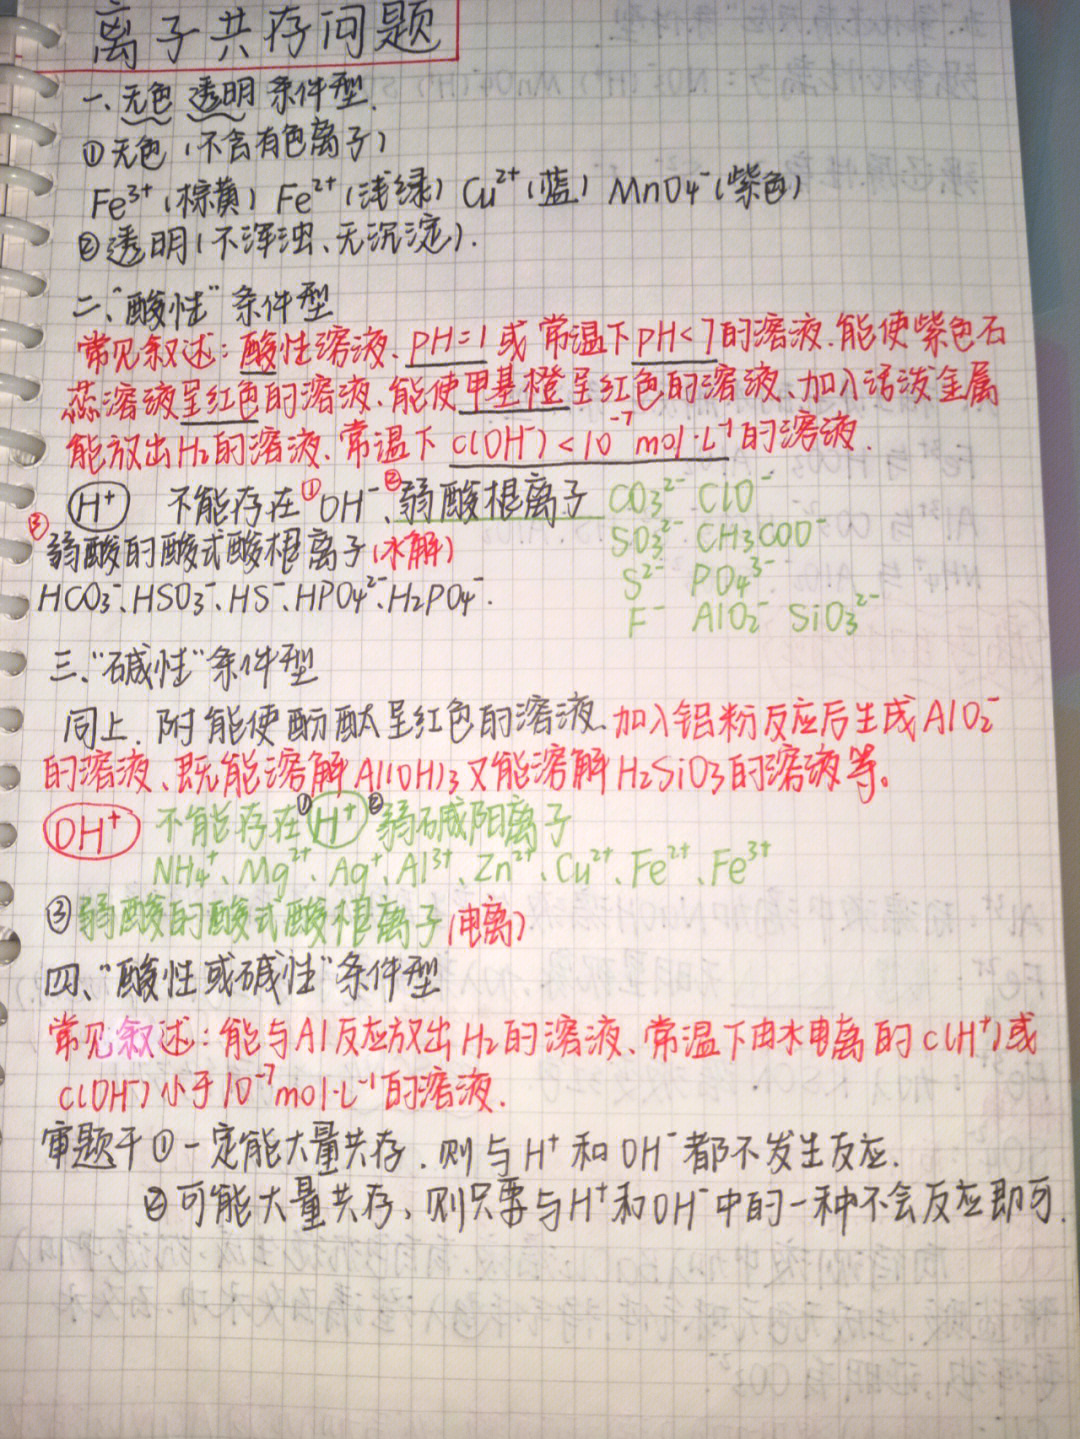 离子共存问题
一、无色 透明 条件型.
①无色(不含有色离子)
Fe³⁺(棕黄) Fe²⁺(浅绿) Cu²⁺(蓝) MnO₄⁻(紫色)
②透明(不浑浊、无沉淀).
二、“酸性”条件型
常见叙述:酸性溶液、pH=1或常温下pH<7的溶液.能使紫色石
蕊溶液呈红色的溶液、能使甲基橙呈红色的溶液、加入活泼金属
能放出H₂的溶液、常温下 c(OH⁻)<10⁻⁷mol·L⁻¹的溶液.
H⁺ 不能存在①OH⁻、②弱酸根离子 CO₃²⁻ ClO⁻
SO₃²⁻ CH₃COO⁻
③弱酸的酸式酸根离子(水解)
S²⁻ PO₄³⁻
HCO₃⁻、HSO₃⁻、HS⁻、HPO₄²⁻、H₂PO₄⁻.
F⁻ AlO₂⁻ SiO₃²⁻
三、“碱性”条件型
同上.附能使酚酞呈红色的溶液、加入铝粉反应后生成AlO₂⁻
的溶液、既能溶解Al(OH)₃又能溶解H₂SiO₃的溶液等。
OH⁺ 不能存在①H⁺ ②弱碱阳离子
NH₄⁺、Mg²⁺、Ag⁺、Al³⁺、Zn²⁺、Cu²⁺、Fe²⁺、Fe³⁺
③弱酸的酸式酸根离子(电离)
四、“酸性或碱性”条件型
常见叙述:能与Al反应放出H₂的溶液、常温下由水电离的c(H⁺)或
c(OH⁻)小于10⁻⁷mol·L⁻¹的溶液.
审题干①一定能大量共存.则与H⁺和OH⁻都不发生反应.
②可能大量共存、则只要与H⁺和OH⁻中的一种不会反应即可.